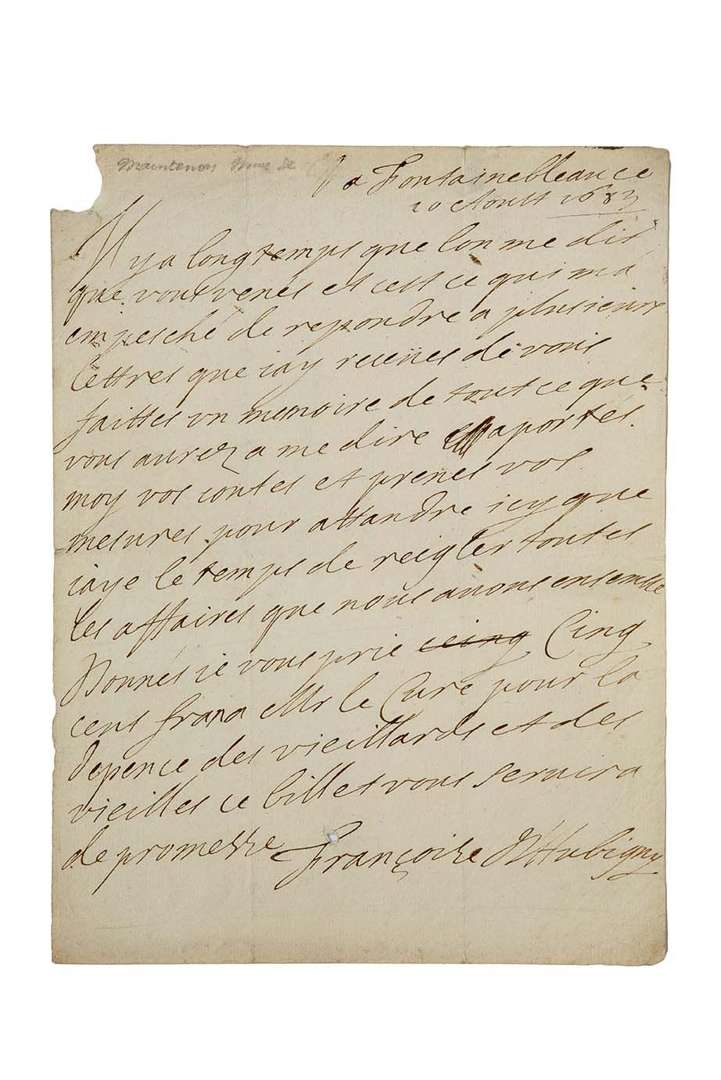 Maintenon Mme de
a Fontainebleau ce
10 Aoust 1683
Il y a longtemps que lon me dit
que vous venes et cest ce qui ma
empesché de repondre a plusieurs
lettres que iay receues de vous
faittes un memoire de tout ce que
vous aurez a me dire aportés
moy vos contes et prenes vos
mesures pour attandre icy que
iaye le temps de reigler toutes
les affaires que nous auons ensemble
Donnes ie vous prie cinq Cinq
cens frans a Mr le Curé pour la
depence des vieillards et des
vieilles ce billet vous seruira
de promesse Françoise D'Aubigny